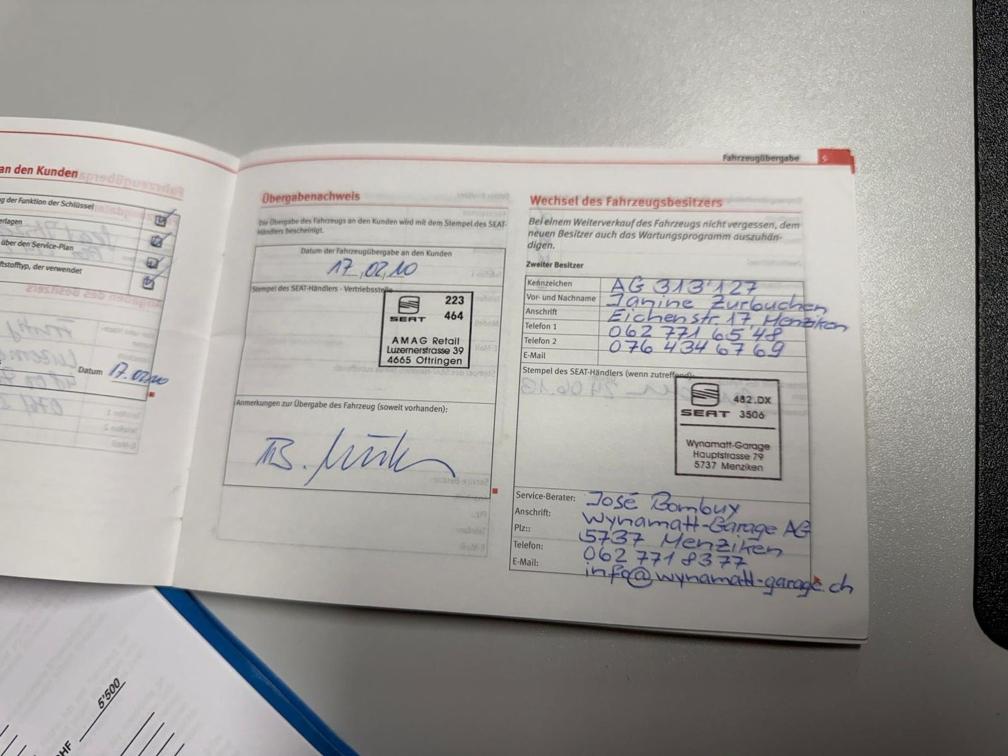 an den Kunden
g der Funktion der Schlüssel
rlagen
über den Service-Plan
ftstofftyp, der verwendet
Datum 17.02.10
Fahrzeugübergabe
Übergabenachweis
Die Übergabe des Fahrzeugs an den Kunden wird mit dem Stempel des SEAT-
Händlers bescheinigt.
Datum der Fahrzeugübergabe an den Kunden
17.02.10
Stempel des SEAT-Händlers - Vertriebsstelle
223
SEAT 464
AMAG Retail
Luzernerstrasse 39
4665 Oftringen
Anmerkungen zur Übergabe des Fahrzeug (soweit vorhanden):
Wechsel des Fahrzeugbesitzers
Bei einem Weiterverkauf des Fahrzeugs nicht vergessen, dem
neuen Besitzer auch das Wartungsprogramm auszuhän-
digen.
Zweiter Besitzer
Kennzeichen AG 313'127
Vor- und Nachname Janine Zurbuchen
Anschrift Eichenstr. 17 Menziken
Telefon 1 062 771 65 48
Telefon 2 076 434 67 69
E-Mail
Stempel des SEAT-Händlers (wenn zutreffend):
482.DX
SEAT 3506
Wynamatt-Garage
Hauptstrasse 79
5737 Menziken
Service-Berater: José Bombuy
Anschrift: Wynamatt-Garage AG
Plz:: 5737 Menziken
Telefon: 062 771 83 77
E-Mail: info@wynamatt-garage.ch
CHF 5'500